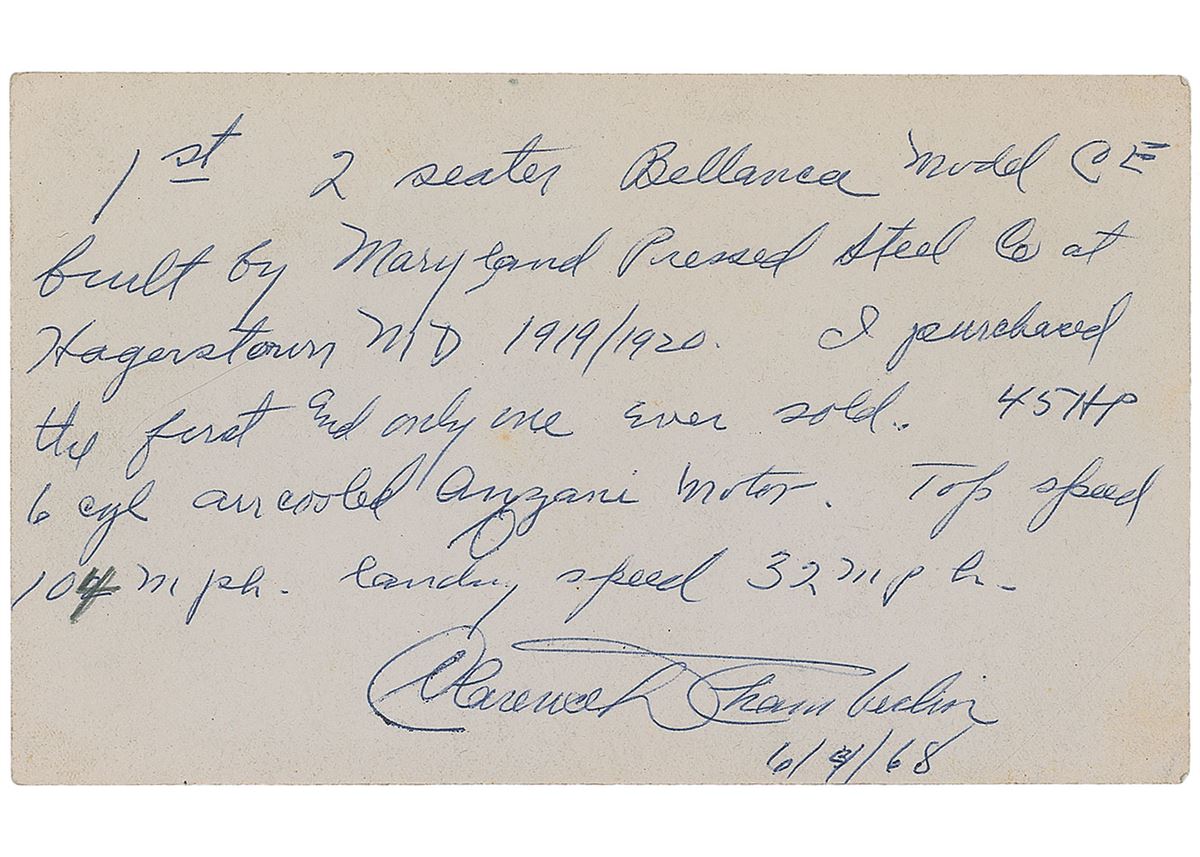 1st 2 seater Bellanca Model CE
built by Maryland Pressed Steel Co at
Hagerstown MD 1919/1920. I purchased
the first and only one ever sold. 45 HP
6 cyl aircooled Anzani Motor. Top speed
104 mph. landing speed 32 mph.
Clarence Chamberlin
6/4/68